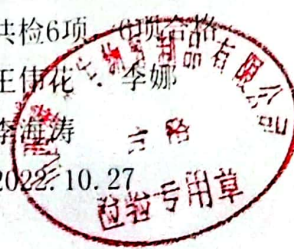 共检6项,6项合格
王伟花、李娜
李海涛
2022.10.27
制品有限公司
合格
检验专用章